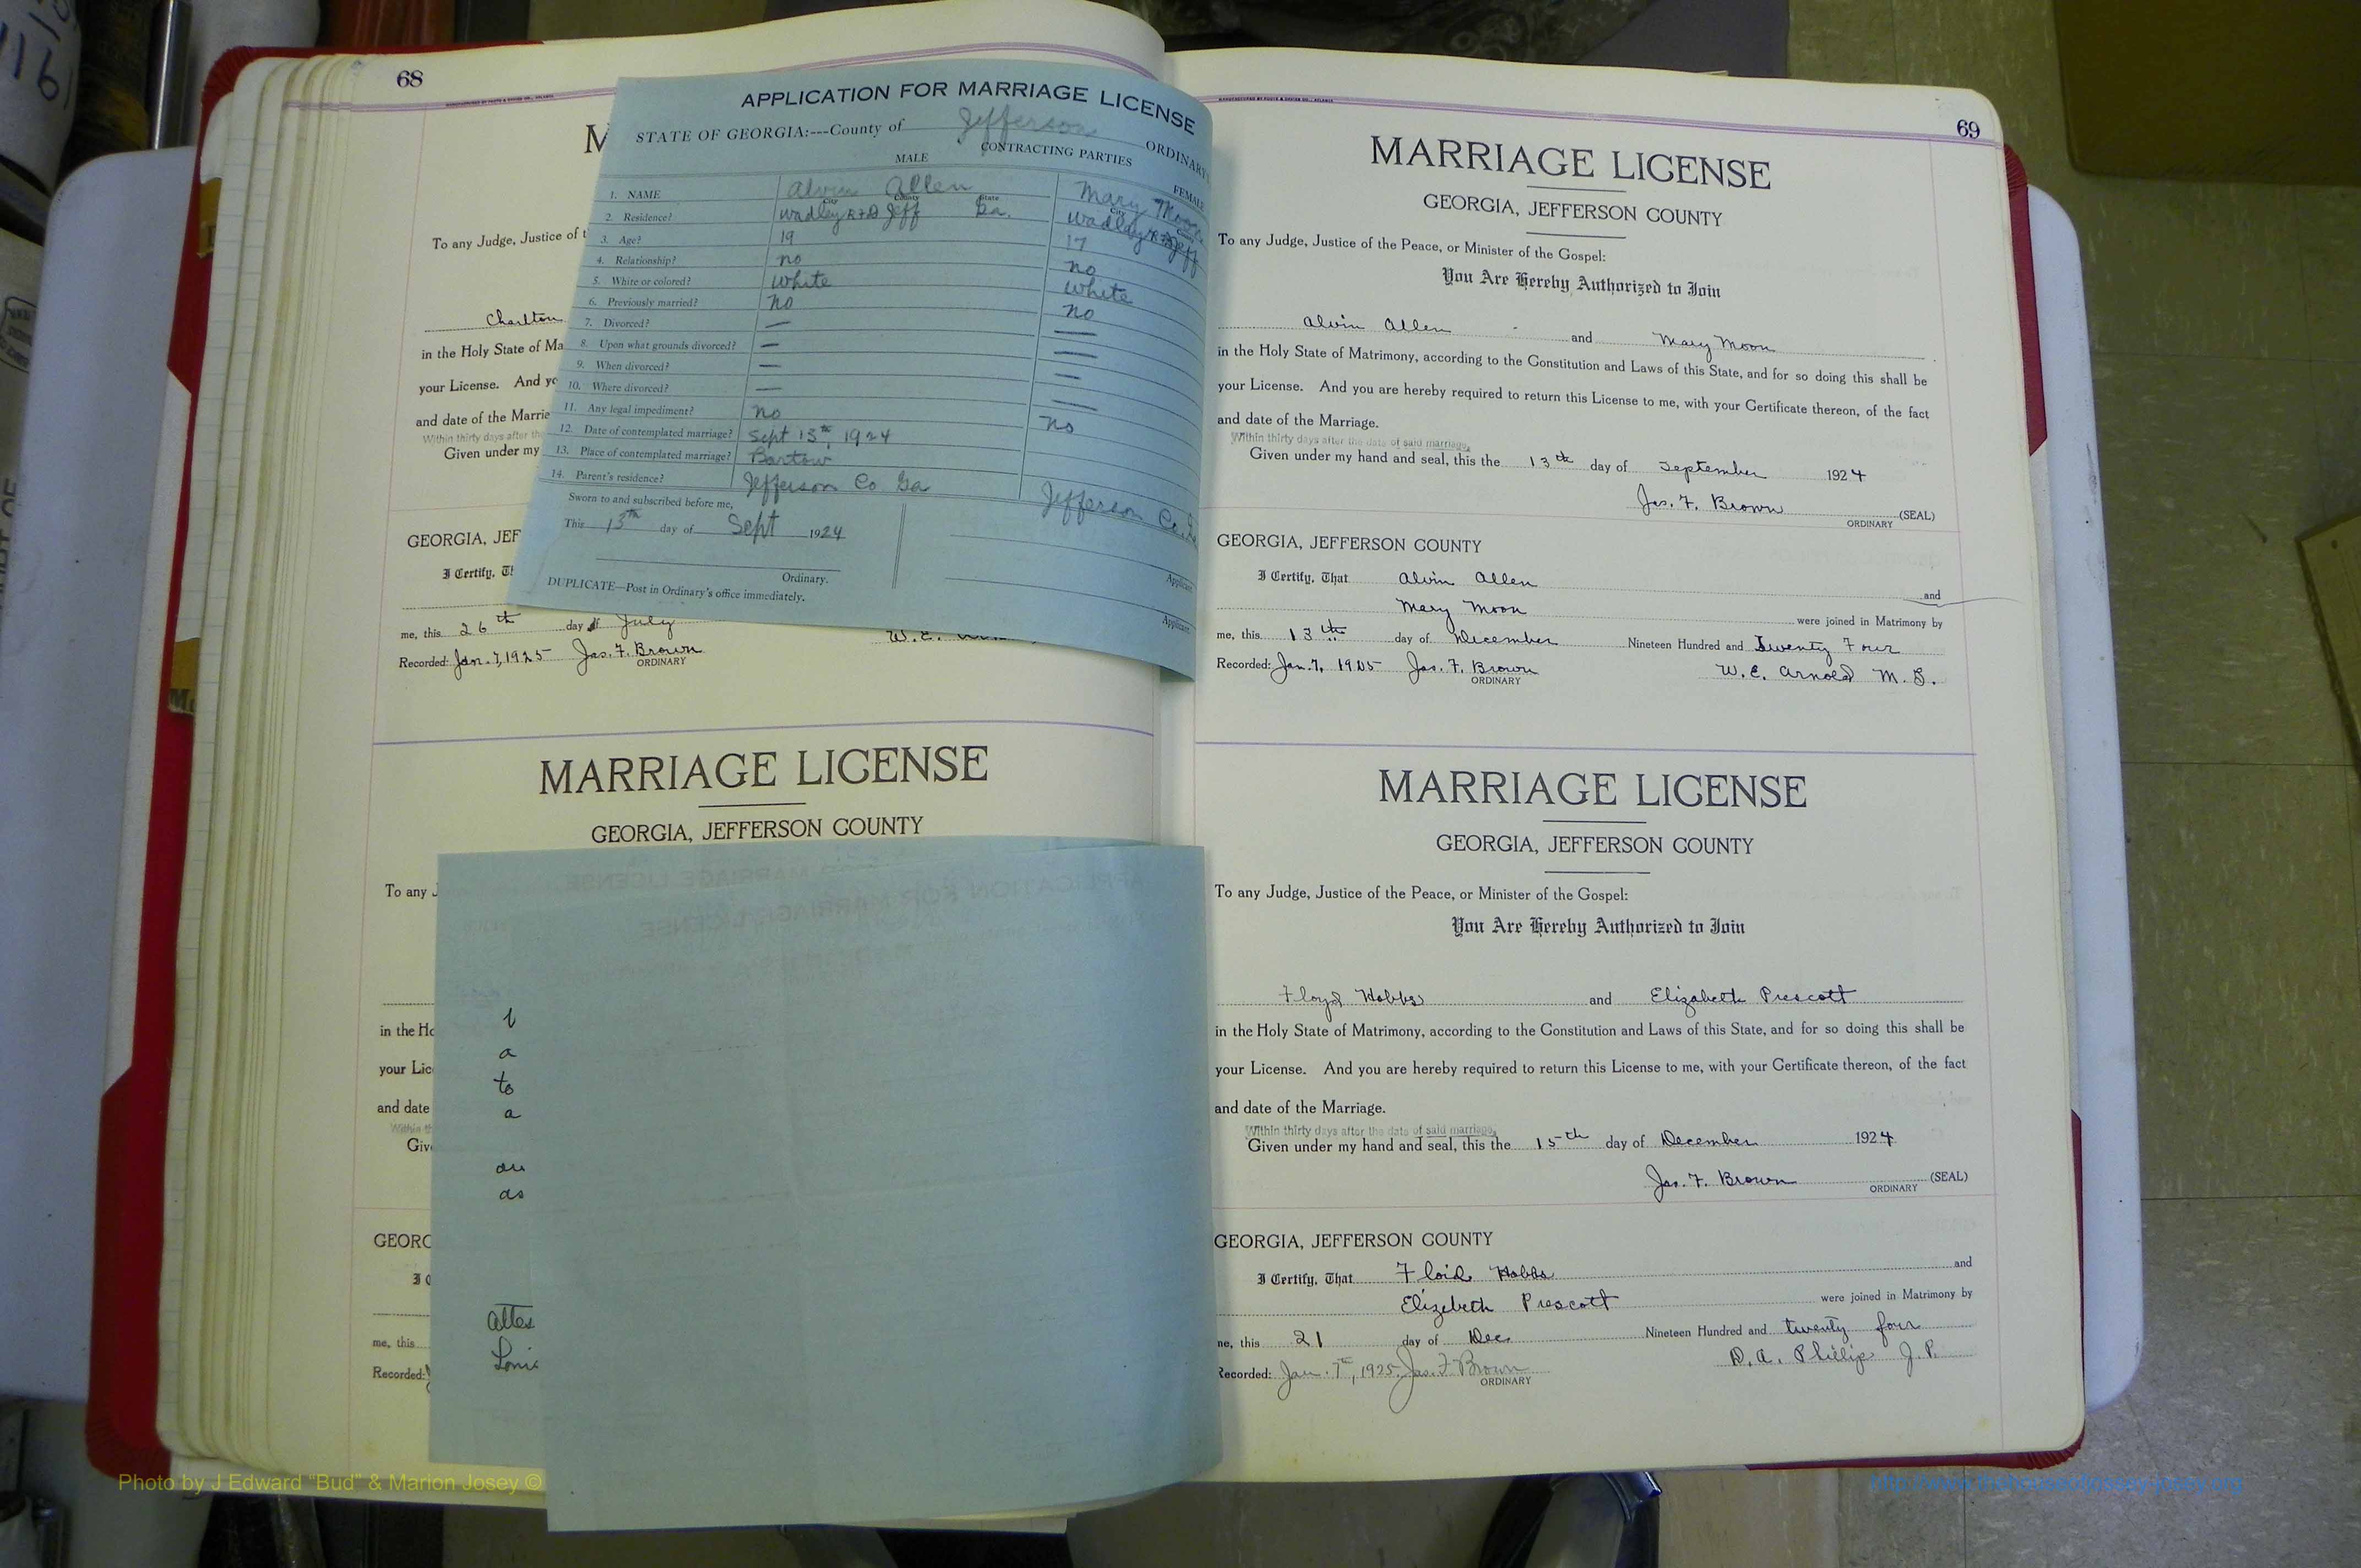 68
M
To any Judge, Justice of t
Charlton
in the Holy State of Ma
your License. And yo
and date of the Marria
Within thirty days after the
Given under my
GEORGIA, JEF
I Certify, Th
me, this 26th day of July
Recorded: Jan. 7, 1925 Jas. F. Brown
ORDINARY
W. E.
APPLICATION FOR MARRIAGE LICENSE
STATE OF GEORGIA:---County of Jefferson ORDINARY
CONTRACTING PARTIES
MALE FEMALE
1. NAME Alvin Allen Mary Moon
City County State City
2. Residence? Wadley RFD Jeff Ga. Wadley RFD Jeff
3. Age? 19 17
4. Relationship? no no
5. White or colored? white white
6. Previously married? no no
7. Divorced? — —
8. Upon what grounds divorced? — —
9. When divorced? — —
10. Where divorced? — —
11. Any legal impediment? no no
12. Date of contemplated marriage? Sept 13th, 1924
13. Place of contemplated marriage? Bartow
14. Parent's residence? Jefferson Co Ga Jefferson Co.
Sworn to and subscribed before me,
This 13th day of Sept 1924
Ordinary. Applicant.
DUPLICATE—Post in Ordinary's office immediately.
Applicant.
MARRIAGE LICENSE
GEORGIA, JEFFERSON COUNTY
To any J
in the Ho
your Lic
and date
Within th
Giv
GEORG
I C
me, this
Recorded:
a
to
a
an
as
Attes
Loni
69
MARRIAGE LICENSE
GEORGIA, JEFFERSON COUNTY
To any Judge, Justice of the Peace, or Minister of the Gospel:
You Are Hereby Authorized to Join
Alvin Allen and Mary Moon
in the Holy State of Matrimony, according to the Constitution and Laws of this State, and for so doing this shall be
your License. And you are hereby required to return this License to me, with your Certificate thereon, of the fact
and date of the Marriage.
Within thirty days after the date of said marriage,
Given under my hand and seal, this the 13th day of September 1924
Jas. F. Brown (SEAL)
ORDINARY
GEORGIA, JEFFERSON COUNTY
I Certify, That Alvin Allen and
Mary Moon were joined in Matrimony by
me, this 13th day of December Nineteen Hundred and Twenty Four
Recorded: Jan. 7, 1925 Jas. F. Brown W. E. Arnold M. G.
ORDINARY
MARRIAGE LICENSE
GEORGIA, JEFFERSON COUNTY
To any Judge, Justice of the Peace, or Minister of the Gospel:
You Are Hereby Authorized to Join
Floyd Hobbs and Elizabeth Prescott
in the Holy State of Matrimony, according to the Constitution and Laws of this State, and for so doing this shall be
your License. And you are hereby required to return this License to me, with your Certificate thereon, of the fact
and date of the Marriage.
Within thirty days after the date of said marriage,
Given under my hand and seal, this the 15th day of December 1924
Jas. F. Brown (SEAL)
ORDINARY
GEORGIA, JEFFERSON COUNTY
I Certify, That Floid Hobbs and
Elizebeth Prescott were joined in Matrimony by
me, this 21 day of Dec Nineteen Hundred and twenty four
D. A. Phillip J. P.
Recorded: Jan. 7th, 1925. Jas. F. Brown
ORDINARY
Photo by J Edward "Bud" & Marion Josey ©
http://www.thehouseofjossey-josey.org